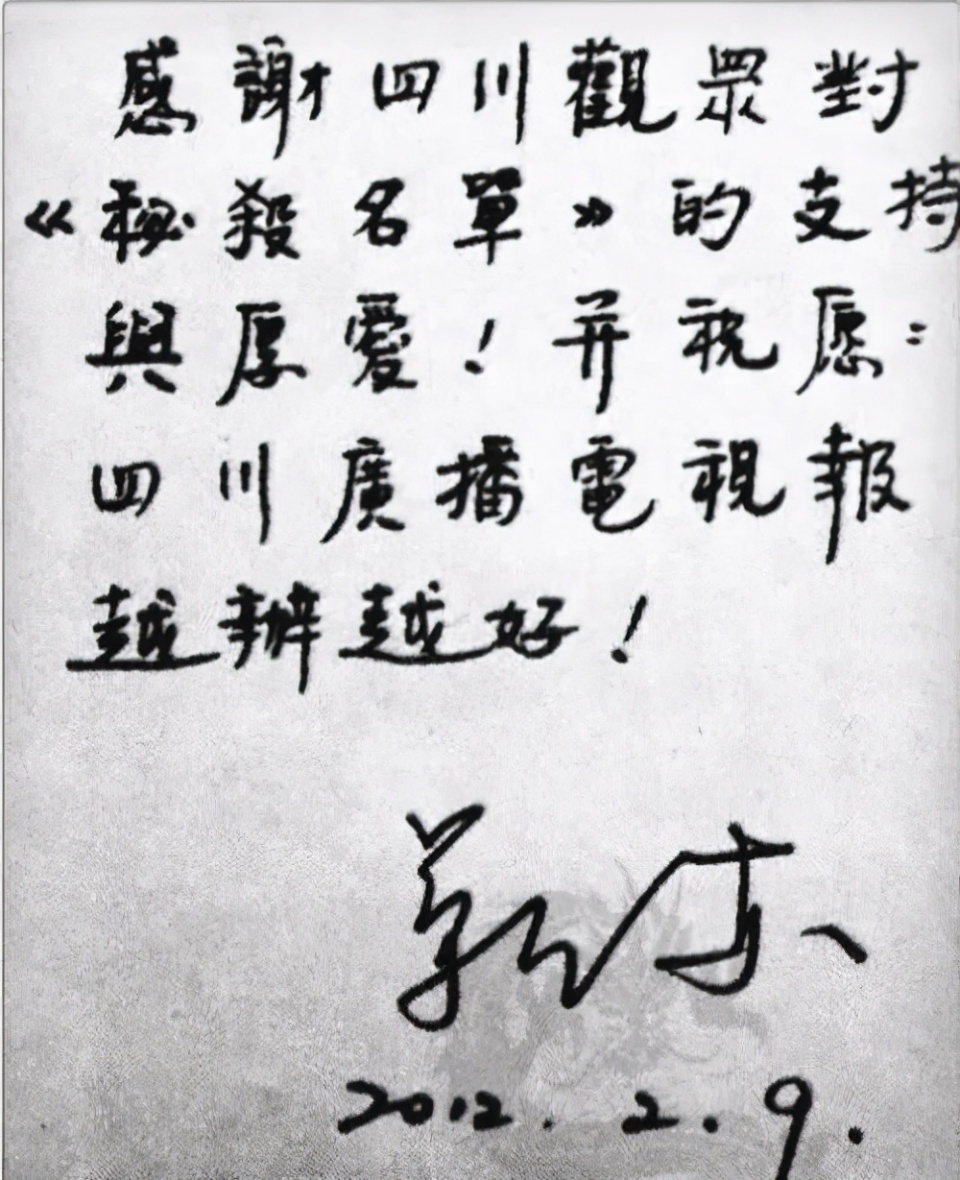 感謝四川觀眾對
《秘殺名單》的支持
與厚愛！并祝愿：
四川廣播電視報
越辦越好！
2012.2.9.